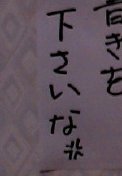 音きを
下さいな